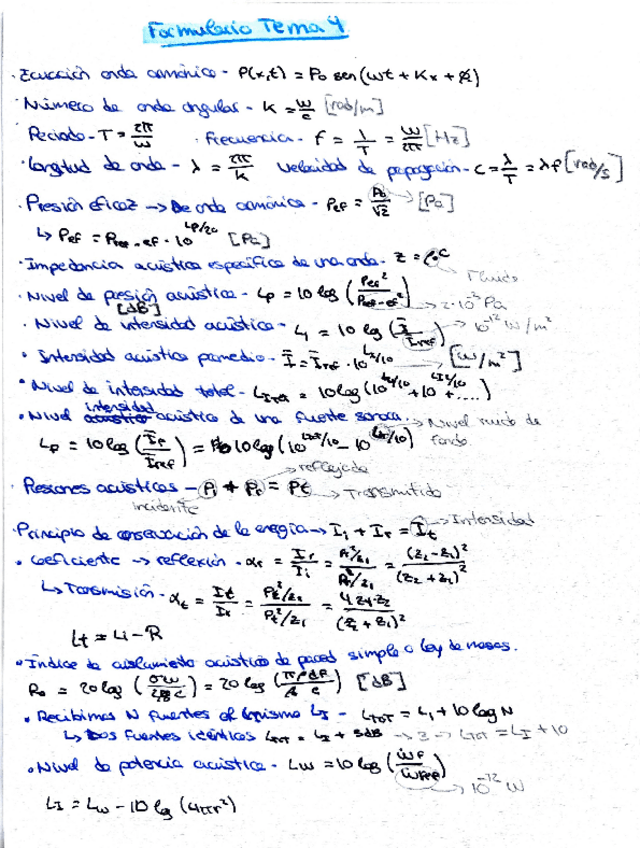 Formulario Tema 4
· Ecuación onda armónica - P(x,t) = Po sen(ωt + Kx + φ)
· Número de onda angular - K = ω/c [rad/m]
· Periodo - T = 2π/ω · Frecuencia - f = 1/T = ω/2π [Hz]
· Longitud de onda - λ = 2π/K Velocidad de propagación - C = λ/T = λf [rad/s]
· Presión eficaz → De onda armónica - Pef = Po/√2 → [Pa]
↳ Pef = Pref-ef · 10^(Lp/20) [Pa]
· Impedancia acústica específica de una onda - z = ρ·c
Fluido
· Nivel de presión acústica - Lp = 10 log (Pef²/Pref-ef²) → 2·10^-5 Pa
[dB]
· Nivel de intensidad acústica - LI = 10 log (Ī/Īref) → 10^-12 W/m²
· Intensidad acústica promedio - Ī = Īref · 10^(LI/10) [W/m²]
· Nivel de intensidad total - LITot = 10 log (10^(LI/10) + 10^(LI/10) + ....)
· Nivel intensidad acústica de una fuente sonora. → Nivel ruido de fondo
LF = 10 log (ĪF/Īref) = 10 log (10^(LTot/10) - 10^(Lr/10))
· Presiones acústicas - Pi + Pr = Pt → Transmitido
incidente → reflejada
· Principio de conservación de la energía → Ii + Ir = It → Intensidad
· Coeficiente → reflexión - αr = Ir/Ii = (Pr²/z1)/(Pi²/z1) = (z2 - z1)²/(z2 + z1)²
↳ Transmisión - αt = It/Ii = (Pt²/z2)/(Pi²/z1) = 4z1·z2/(z2 + z1)²
Lt = Li - R
· Índice de aislamiento acústico de pared simple o ley de masas.
Ro = 20 log (σω/2ρc) = 20 log (πρdf/ρc) [dB]
· Recibimos N fuentes el mismo LI - LTOT = LI + 10 log N
↳ Dos fuentes idénticas LTOT = LI + 3dB → LTOT = LI + 10
· Nivel de potencia acústica - Lw = 10 log (ẆF/Ẇref) → 10^-12 W
LI = Lw - 10 log (4πr²)